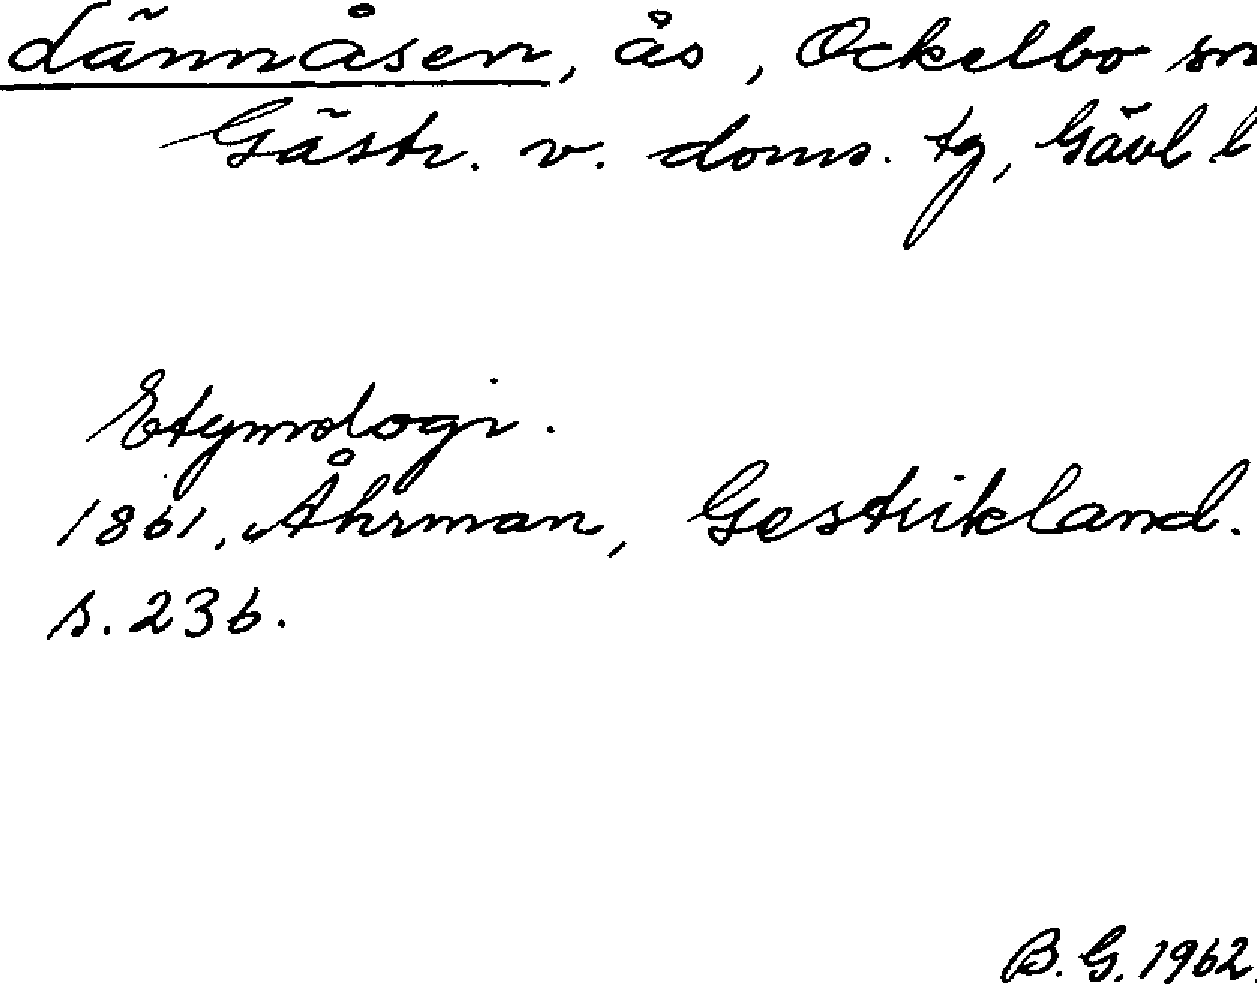 Lännåsen, ås, Ockelbo sn
Gästr. v. doms. tg, Gävl l
Etymologi.
1861, Åhrman, Gestrikland.
s. 236.
B. G. 1962.